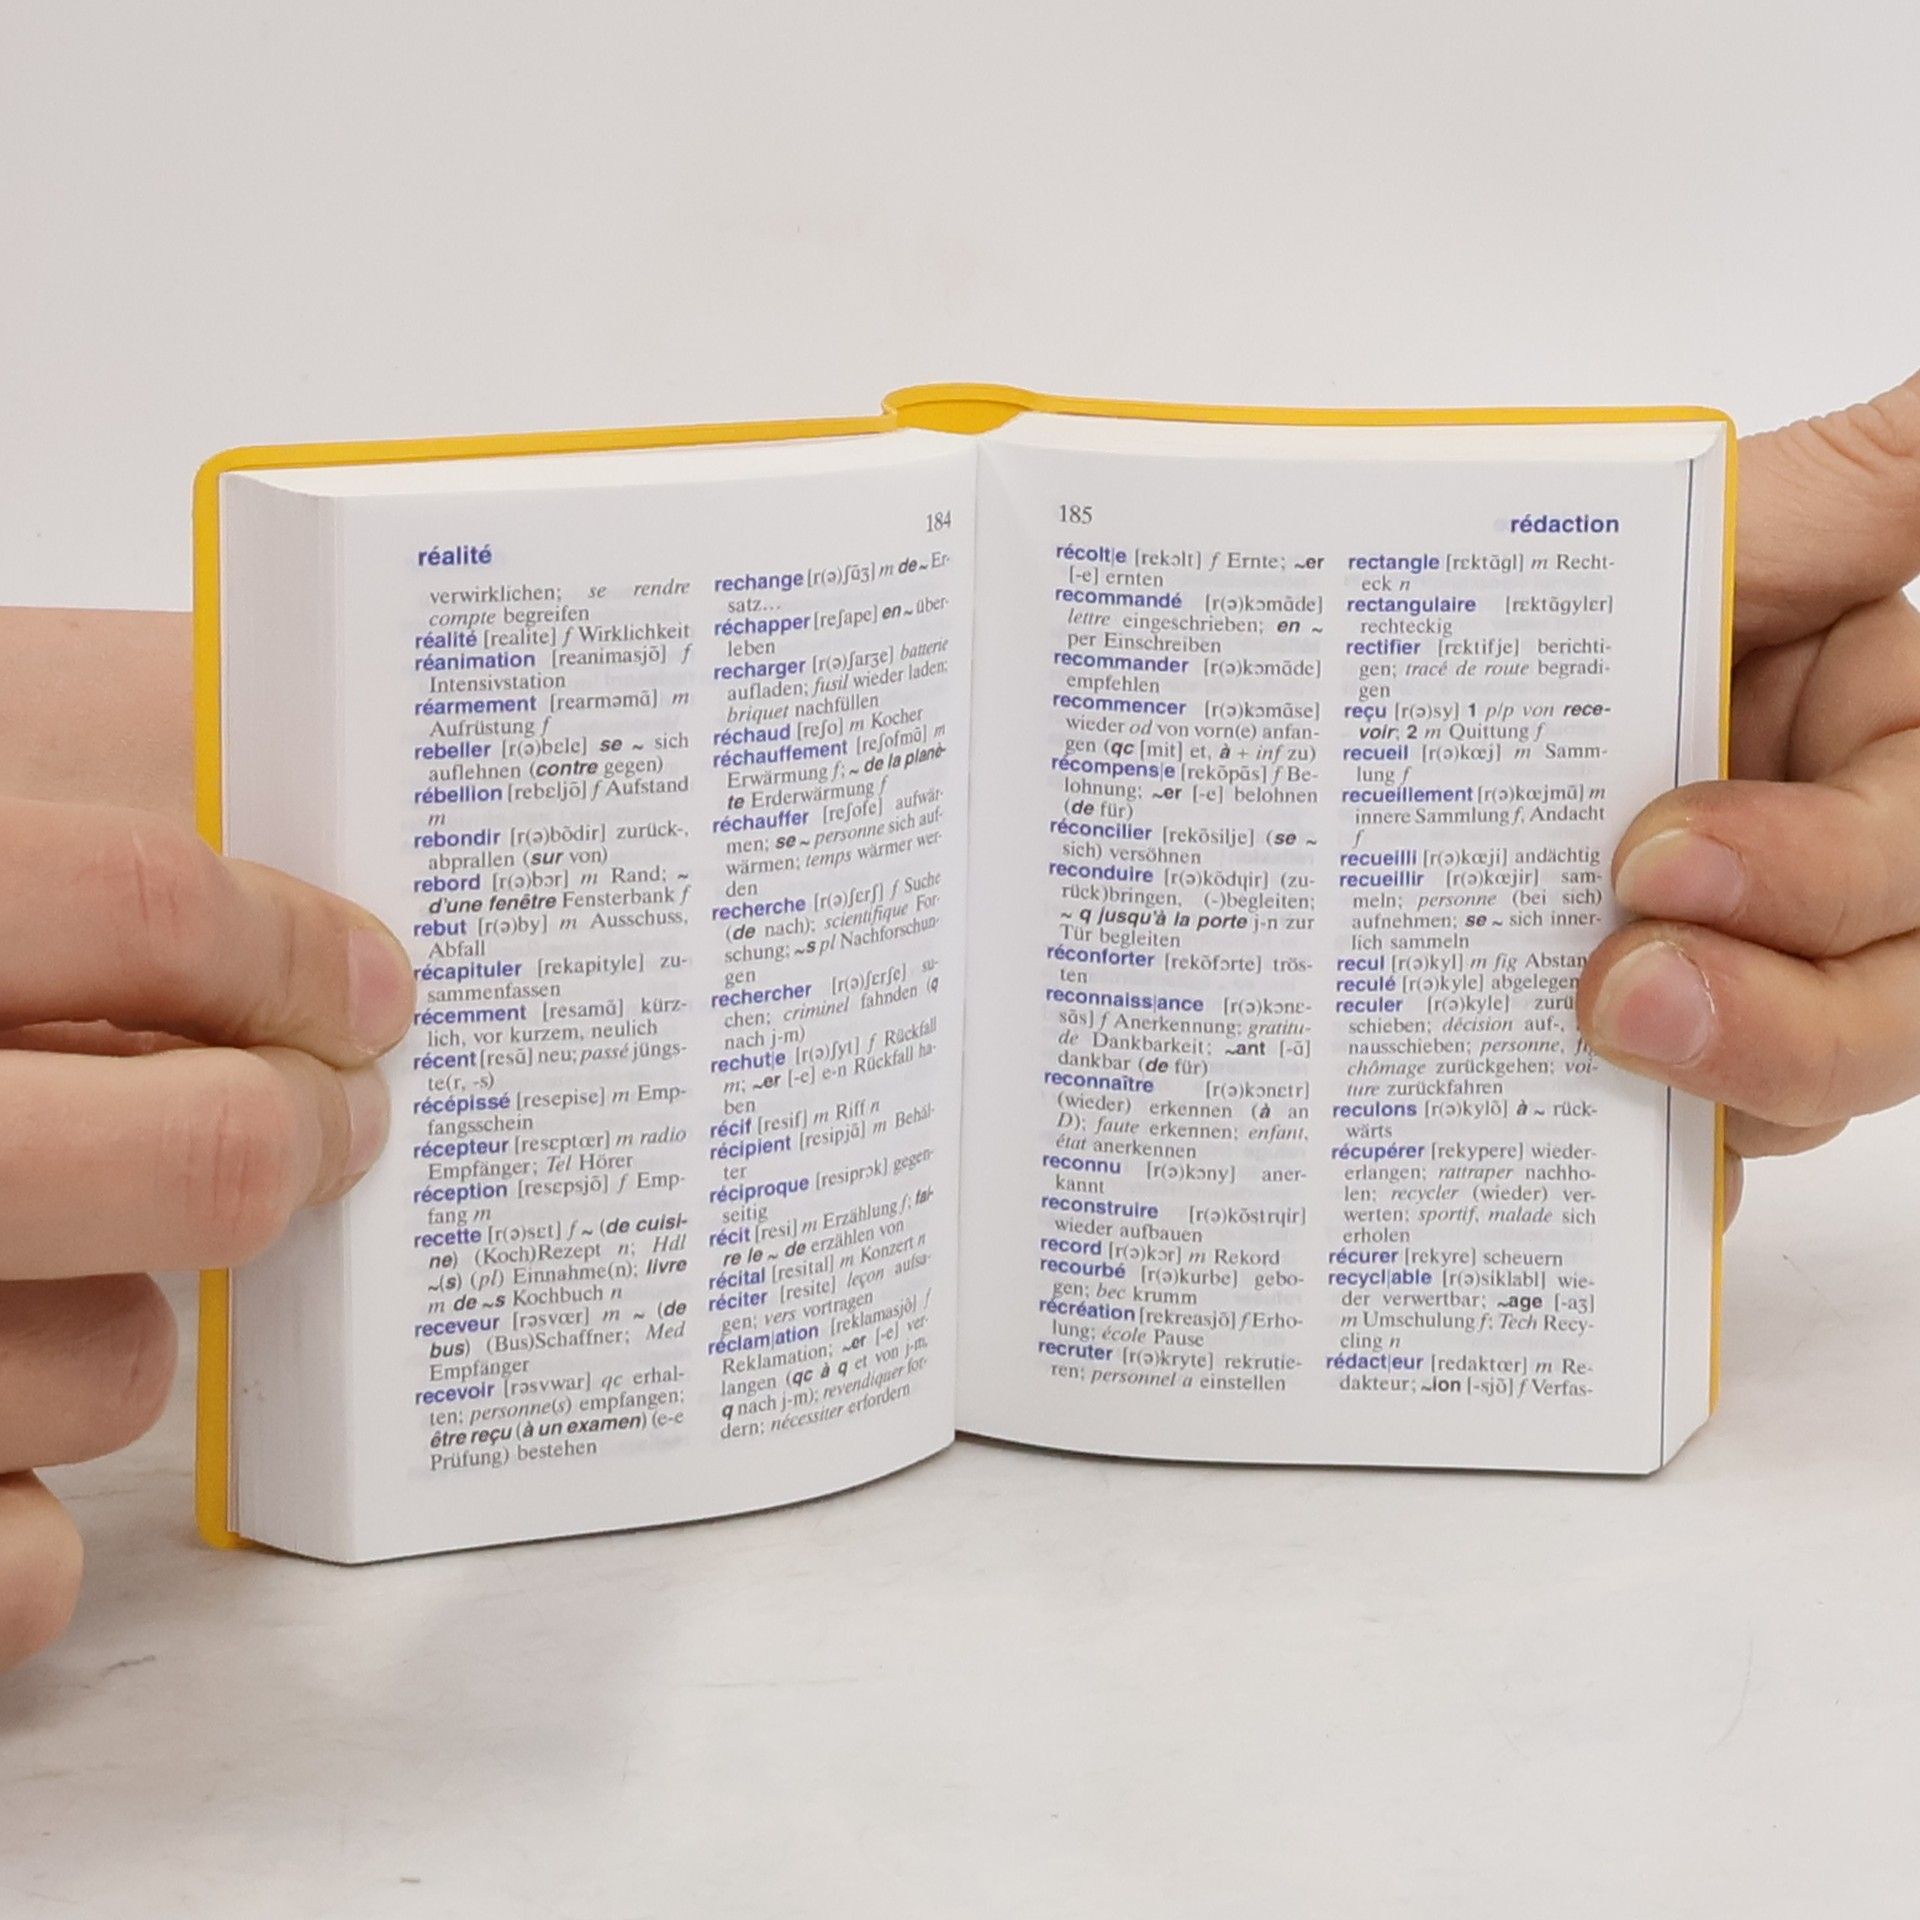 réalité
184
verwirklichen; se rendre
compte begreifen
réalité [realite] f Wirklichkeit
réanimation [reanimasjõ] f
Intensivstation
réarmement [rearməmɑ̃] m
Aufrüstung f
rebeller [r(ə)bɛle] se ~ sich
auflehnen (contre gegen)
rébellion [rebɛljõ] f Aufstand
m
rebondir [r(ə)bõdir] zurück-,
abprallen (sur von)
rebord [r(ə)bɔr] m Rand; ~
d'une fenêtre Fensterbank f
rebut [r(ə)by] m Ausschuss,
Abfall
récapituler [rekapityle] zu-
sammenfassen
récemment [resamɑ̃] kürz-
lich, vor kurzem, neulich
récent [resɑ̃] neu; passé jüngs-
te(r, -s)
récépissé [resepise] m Emp-
fangsschein
récepteur [resɛptœr] m radio
Empfänger; Tel Hörer
réception [resɛpsjõ] f Emp-
fang m
recette [r(ə)sɛt] f ~ (de cuisi-
ne) (Koch)Rezept n; Hdl
~(s) (pl) Einnahme(n); livre
m de ~s Kochbuch n
receveur [rəsvœr] m ~ (de
bus) (Bus)Schaffner; Med
Empfänger
recevoir [rəsvwar] qc erhal-
ten; personne(s) empfangen;
être reçu (à un examen) (e-e
Prüfung) bestehen
rechange [r(ə)ʃɑ̃ʒ] m de ~ Er-
satz...
réchapper [reʃape] en ~ über-
leben
recharger [r(ə)ʃarʒe] batterie
aufladen; fusil wieder laden;
briquet nachfüllen
réchaud [reʃo] m Kocher
réchauffement [reʃofmɑ̃] m
Erwärmung f; ~ de la planè-
te Erderwärmung f
réchauffer [reʃofe] aufwär-
men; se ~ personne sich auf-
wärmen; temps wärmer wer-
den
recherche [r(ə)ʃɛrʃ] f Suche
(de nach); scientifique For-
schung; ~s pl Nachforschun-
gen
rechercher [r(ə)ʃɛrʃe] su-
chen; criminel fahnden (q
nach j-m)
rechut|e [r(ə)ʃyt] f Rückfall
m; ~er [-e] e-n Rückfall ha-
ben
récif [resif] m Riff n
récipient [resipjɑ̃] m Behäl-
ter
réciproque [resiprɔk] gegen-
seitig
récit [resi] m Erzählung f; fai-
re le ~ de erzählen von
récital [resital] m Konzert n
réciter [resite] leçon aufsa-
gen; vers vortragen
réclam|ation [reklamasjõ] f
Reklamation; ~er [-e] ver-
langen (qc à q et von j-m,
q nach j-m); revendiquer for-
dern; nécessiter erfordern
185
rédaction
récolt|e [rekɔlt] f Ernte; ~er
[-e] ernten
recommandé [r(ə)kɔmɑ̃de]
lettre eingeschrieben; en ~
per Einschreiben
recommander [r(ə)kɔmɑ̃de]
empfehlen
recommencer [r(ə)kɔmɑ̃se]
wieder od von vorn(e) anfan-
gen (qc [mit] et, à + inf zu)
récompens|e [rekõpɑ̃s] f Be-
lohnung; ~er [-e] belohnen
(de für)
réconcilier [rekõsilje] (se ~
sich) versöhnen
reconduire [r(ə)kõdɥir] (zu-
rück)bringen, (-)begleiten;
~ q jusqu'à la porte j-n zur
Tür begleiten
réconforter [rekõfɔrte] trös-
ten
reconnaiss|ance [r(ə)kɔnɛ-
sɑ̃s] f Anerkennung; gratitu-
de Dankbarkeit; ~ant [-ɑ̃]
dankbar (de für)
reconnaître [r(ə)kɔnɛtr]
(wieder) erkennen (à an
D); faute erkennen; enfant,
état anerkennen
reconnu [r(ə)kɔny] aner-
kannt
reconstruire [r(ə)kõstrɥir]
wieder aufbauen
record [r(ə)kɔr] m Rekord
recourbé [r(ə)kurbe] gebo-
gen; bec krumm
récréation [rekreasjõ] f Erho-
lung; école Pause
recruter [r(ə)kryte] rekrutie-
ren; personnel a einstellen
rectangle [rɛktɑ̃gl] m Recht-
eck n
rectangulaire [rɛktɑ̃gylɛr]
rechteckig
rectifier [rɛktifje] berichti-
gen; tracé de route begradi-
gen
reçu [r(ə)sy] 1 p/p von rece-
voir; 2 m Quittung f
recueil [r(ə)kœj] m Samm-
lung f
recueillement [r(ə)kœjmɑ̃] m
innere Sammlung f, Andacht
f
recueilli [r(ə)kœji] andächtig
recueillir [r(ə)kœjir] sam-
meln; personne (bei sich)
aufnehmen; se ~ sich inner-
lich sammeln
recul [r(ə)kyl] m fig Abstan
reculé [r(ə)kyle] abgelegen
reculer [r(ə)kyle] zurü
schieben; décision auf-,
nausschieben; personne, fig
chômage zurückgehen; voi-
ture zurückfahren
reculons [r(ə)kylõ] à ~ rück-
wärts
récupérer [rekypere] wieder-
erlangen; rattraper nachho-
len; recycler (wieder) ver-
werten; sportif, malade sich
erholen
récurer [rekyre] scheuern
recycl|able [r(ə)siklabl] wie-
der verwertbar; ~age [-aʒ]
m Umschulung f; Tech Recy-
cling n
rédact|eur [redaktœr] m Re-
dakteur; ~ion [-sjõ] f Verfas-